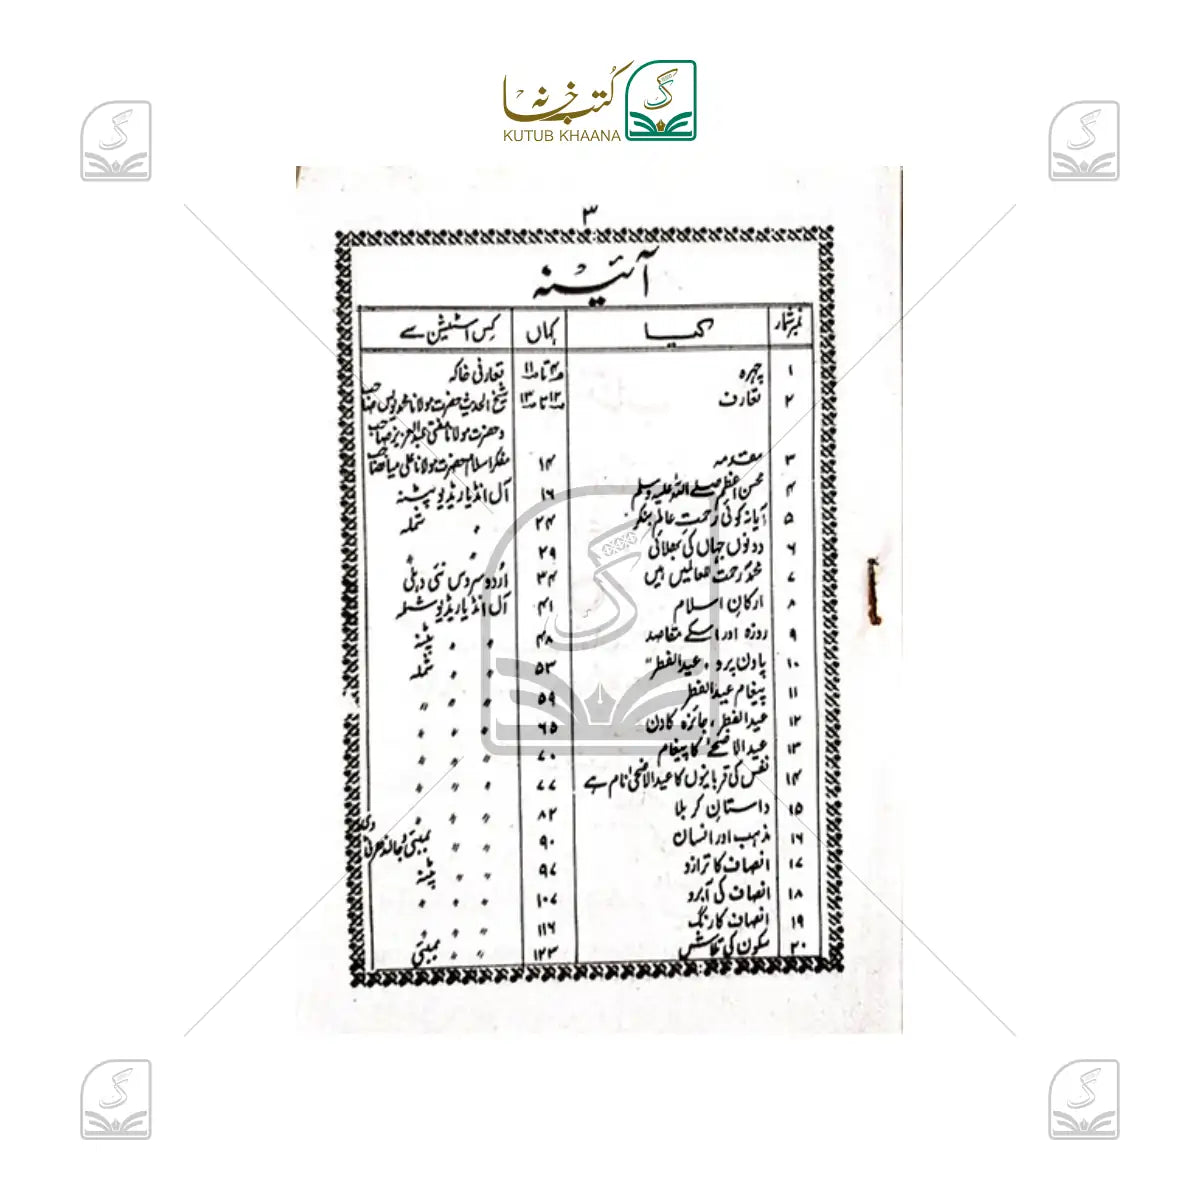 کتب خانہ
KUTUB KHAANA
۳
آئینہ
نمبر شمار کیا کہاں کس اسٹیشن سے
۱ چہرہ ۴ تا ۱۱ تعارفی خاکہ
۲ تعارف ۱۲ تا ۱۳ شیخ الحدیث حضرت مولانا محمد یونس صاحب
و حضرت مولانا مفتی عبدالعزیز صاحب
۳ مقدمہ ۱۴ مفکر اسلام حضرت مولانا علی میاں صاحب
۴ محسن اعظم صلے اللہ علیہ وسلم ۱۶ آل انڈیا ریڈیو پٹنہ
۵ آیا نہ کوئی رحمتِ عالم بنکر ۲۴ " شملہ
۶ دونوں جہاں کی بھلائی ۲۹ " "
۷ محمدؐ رحمت للعالمیں ہیں ۳۴ اُردو سروس نئی دہلی
۸ ارکانِ اسلام ۴۱ آل انڈیا ریڈیو شملہ
۹ روزہ اور اسکے مقاصد ۴۸ " " پٹنہ
۱۰ پاون پرو، عیدالفطر" ۵۳ " " شملہ
۱۱ پیغام عیدالفطر ۵۹ " " "
۱۲ عیدالفطر، جائزہ کا دن ۶۵ " " "
۱۳ عیدالاضحےٰ کا پیغام ۷۰ " " "
۱۴ نفس کی قربانیوں کا عیدالاضحیٰ نام ہے ۷۷ " " "
۱۵ داستانِ کربلا ۸۲ " " "
۱۶ مذہب اور انسان ۹۰ " " بمبئی و جالندھر
۱۷ انصاف کا ترازو ۹۷ " " پٹنہ
۱۸ انصاف کی آبرو ۱۰۷ " " "
۱۹ انصاف کا رنگ ۱۱۶ " " "
۲۰ سکون کی تلاش ۱۲۳ " " بمبئی